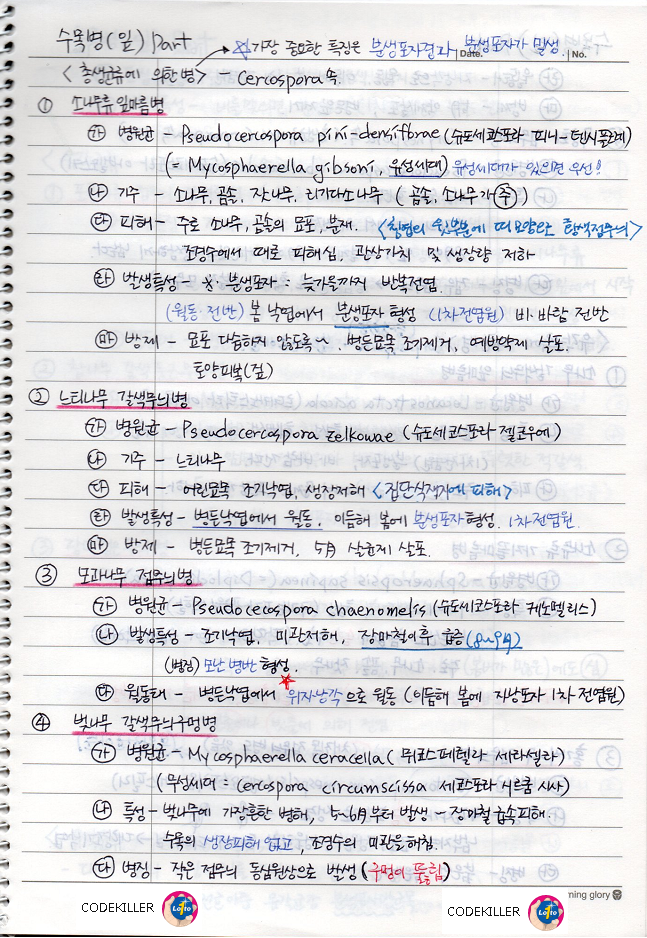 수목병(잎) Part
☆가장 중요한 특징은 분생포자경과 분생포자가 밀생.
Date. No.
<총생균류에 의한 병> - Cercospora 속.
① 소나무류 잎마름병
㉮ 병원균 - Pseudocercospora pini-densiflorae (슈도세르코스포라 피니-덴시플로레)
(= Mycosphaerella gibsoni, 유성세대) 유성세대가 있으면 우선!
㉯ 기주 - 소나무, 곰솔, 잣나무, 리기다소나무 ( 곰솔, 소나무가 주)
㉰ 피해 - 주로 소나무, 곰솔의 묘포, 분재. <침엽의 윗부분에 띠모양의 황색점무늬>
조경수에서 때로 피해심, 관상가치 및 생장량 저하
㉱ 발생특성 - ※: 분생포자 : 늦가을까지 반복전염.
(월동 전반) 봄 낙엽에서 분생포자 형성 (1차전염원) 비·바람 전반
㉲ 방제 - 묘포 다습하지 않도록~, 병든묘목 조기제거, 예방약제 살포.
토양피복(짚)
② 느티나무 갈색무늬병
㉮ 병원균 - Pseudocercospora zelkowae (슈도세르코스포라 젤코우에)
㉯ 기주 - 느티나무
㉰ 피해 - 어린묘목 조기낙엽, 생장저해 <집단식재지에 피해>
㉱ 발생특성 - 병든낙엽에서 월동, 이듬해 봄에 분생포자형성. 1차전염원
㉲ 방제 - 병든묘목 조기제거, 5月 살균제 살포.
③ 모과나무 점무늬병
㉮ 병원균 - Pseudocecospora chaenomelis (슈도세르코스포라 케노멜리스)
㉯ 발생특성 - 조기낙엽, 미관저해, 장마철이후 급증(8~9月)
(병징) 모난 병반 형성.
㉰ 월동태 - 병든낙엽에서 ☆위자낭각으로 월동 (이듬해 봄에 자낭포자 1차 전염원)
④ 벚나무 갈색무늬구멍병
㉮ 병원균 - Mycosphaerella ceracella (뮈코스페렐라 세라셀라)
(무성세대 = cercospora circumscissa 세르코스포라 서르쿰시사)
㉯ 특성 - 벚나무에 가장흔한 병해, 5~6月부터 발생 - 장마철 급속피해.
수목의 생장피해 없고, 조경수의 미관을 해침.
㉰ 병징 - 작은 점무늬 동심원상으로 발생 (구멍이 뚫림)
ming glory
CODEKILLER Lotto
CODEKILLER Lotto